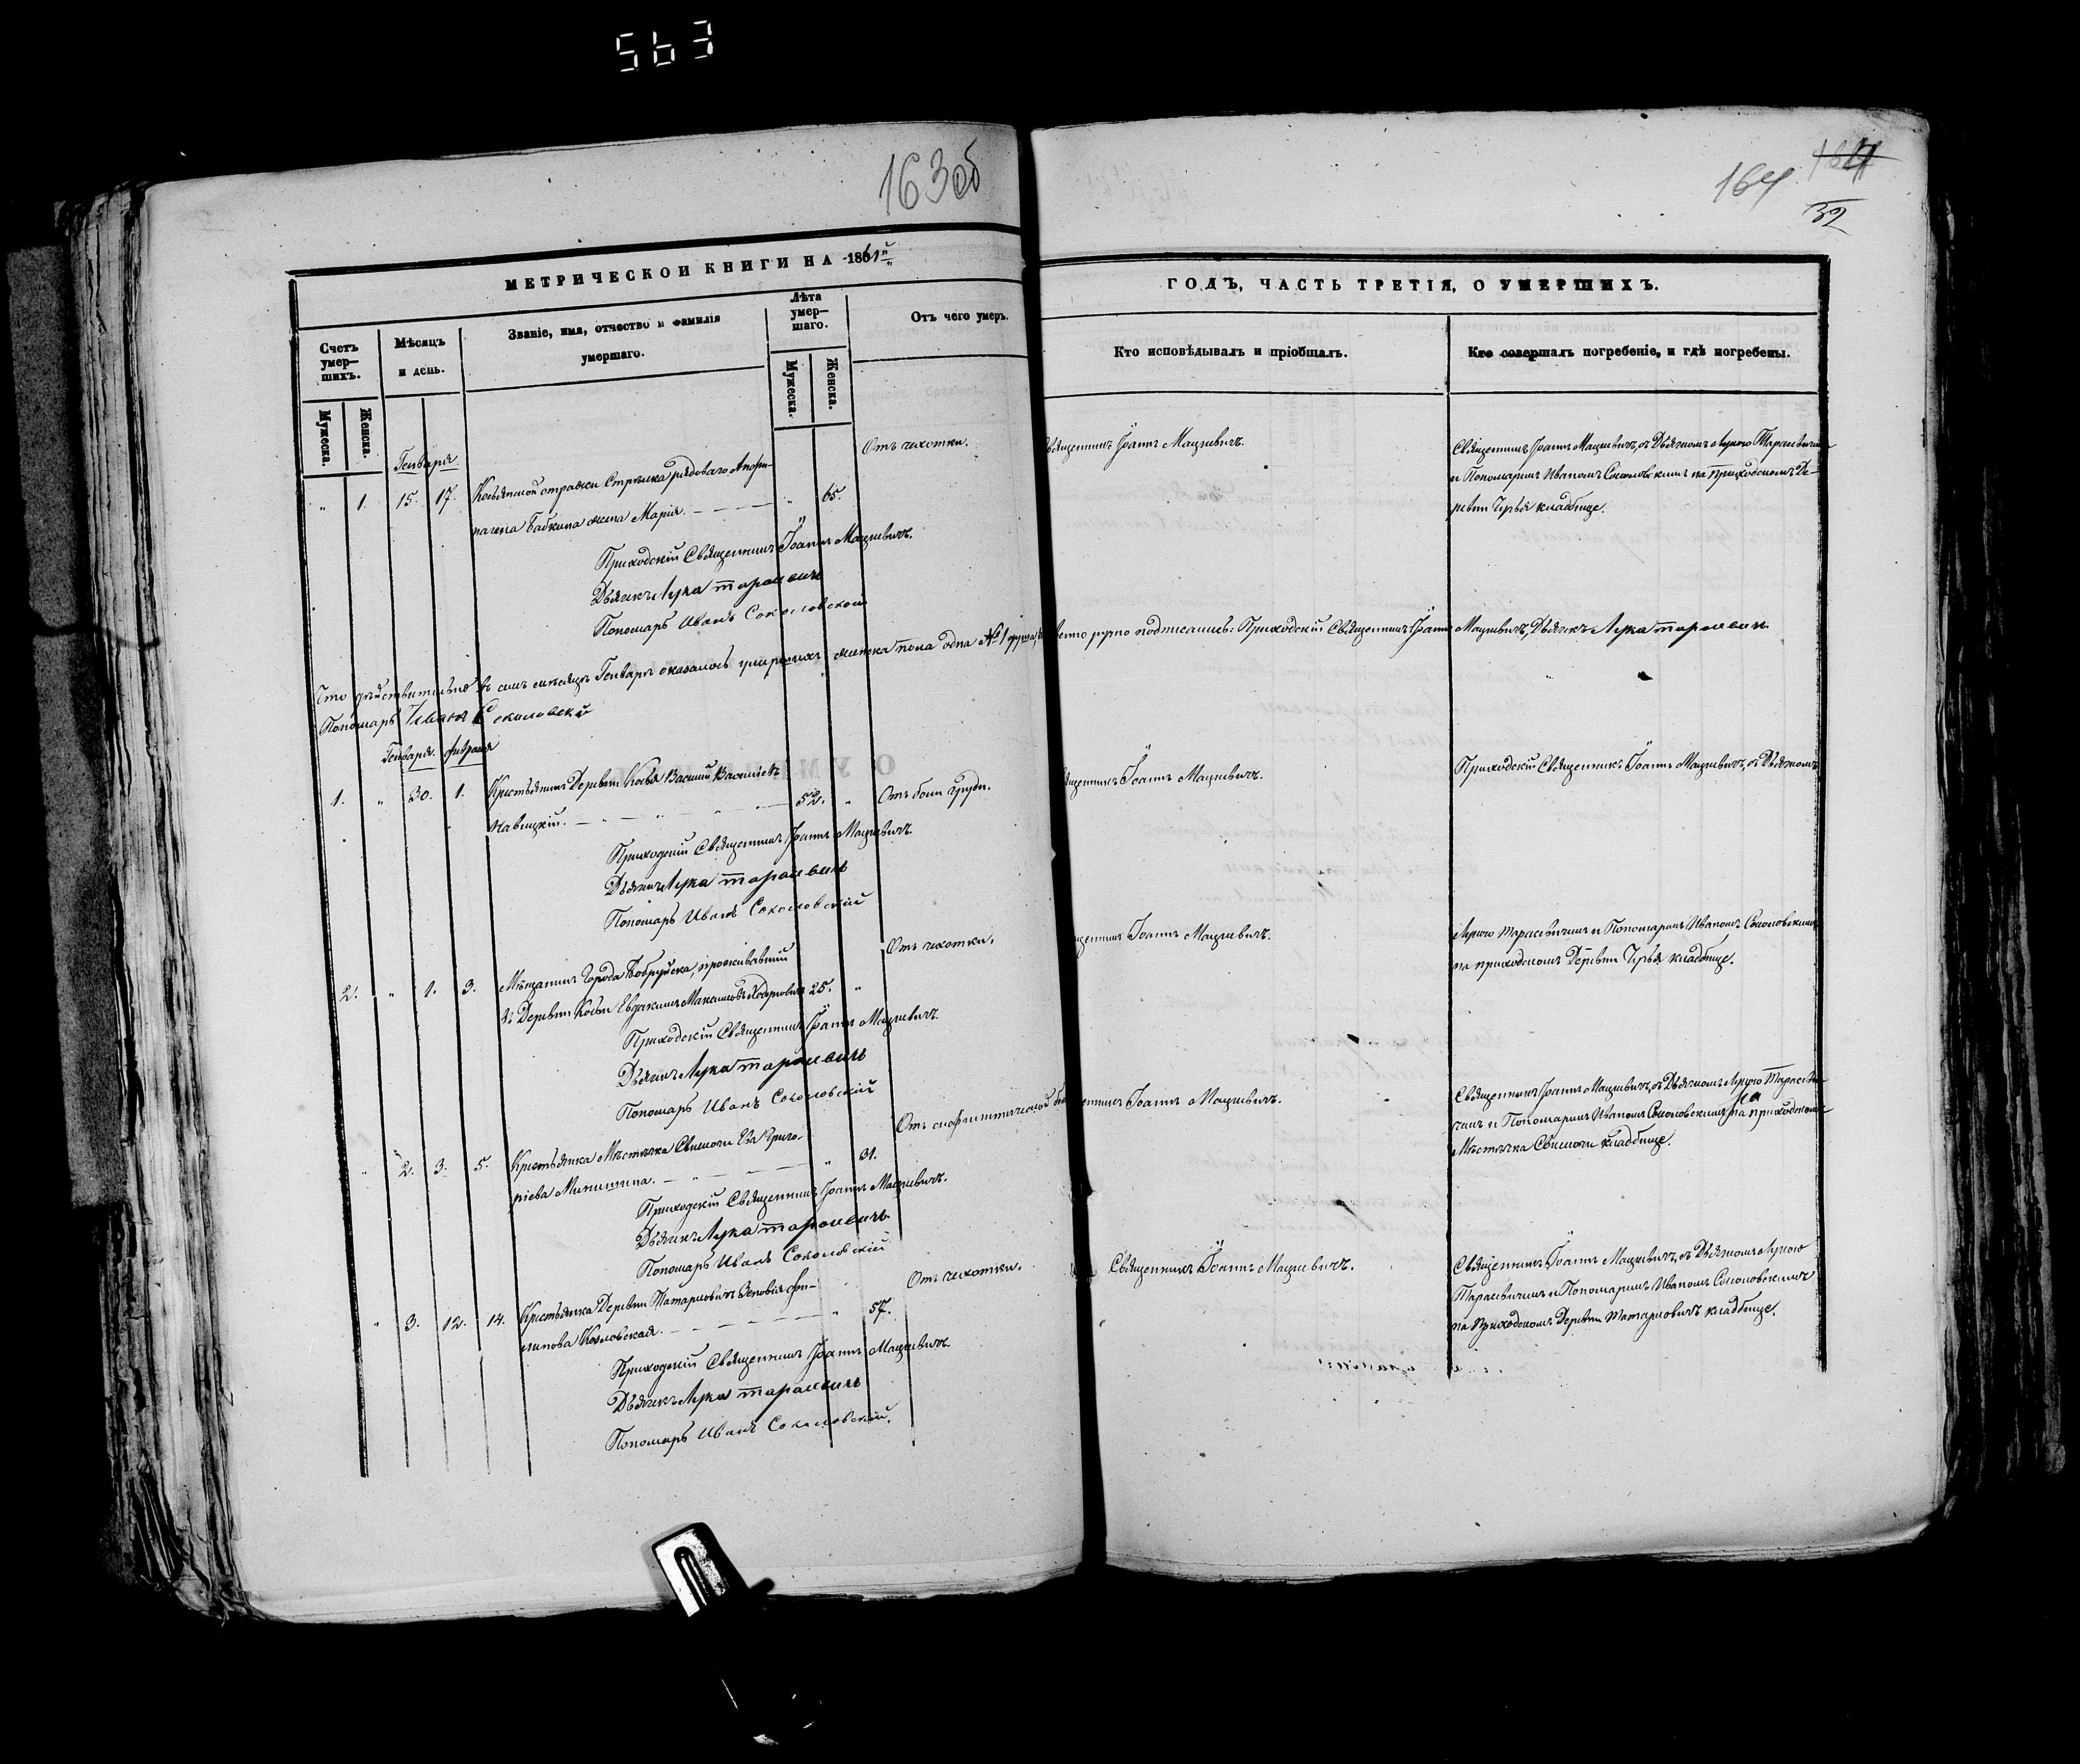 563
163 об
164
32
МЕТРИЧЕСКОЙ КНИГИ НА 1861й
ГОДЪ, ЧАСТЬ ТРЕТІЯ, О УМЕРШИХЪ.
Счетъ умер—шихъ.
Мужеска.
Женска.
Мѣсяцъ и день.
Званіе, имя, отчество и фамилія умершаго.
Лѣта умер—шаго.
Мужеска.
Женска.
Отъ чего умеръ.
Кто исповѣдывалъ и пріобщалъ.
Кто совершалъ погребеніе, и гдѣ погребены.
Генваря.
" 1. 15. 17.
стражи Стрѣлка рядоваго
Бабкина жена Марія.
" 65.
Отъ чахотки.
Священникъ Іоаннъ Мацкевичъ.
Священникъ Іоаннъ Мацкевичъ, съ Дьячкомъ Лукою Тарасевичемъ
и Пономаремъ Иваномъ Соколовскимъ на приходскомъ Де-
ревни кладбище.
Приходскій Священникъ Іоаннъ Мацкевичъ.
Дьячекъ Лука тарасевичъ
Пономарь Иванъ Соколовской
Что дѣйствительно въ семъ мѣсяцѣ Генварѣ оказалось умершихъ женска пола одна № 1 душа, подписались: Приходскій Священникъ Іоаннъ Мацкевичъ, Дьячекъ Лука тарасевичъ
Пономарь Иванъ Соколовскій
Генваря. Февраля
1. " 30. 1.
Крестьянинъ Деревни Косья Василій Васильевъ
52. "
Отъ боли груди.
Священникъ Іоаннъ Мацкевичъ.
Приходскій Священникъ Іоаннъ Мацкевичъ, съ Дьячкомъ
Приходскій Священникъ Іоаннъ Мацкевичъ
Дьячекъ Лука тарасевичъ
Пономарь Иванъ Соколовскій
2. " 1. 3.
Мѣщанинъ Города Бобруйска, проживавшій
въ Деревни Косьи
25. "
Отъ чахотки.
Священникъ Іоаннъ Мацкевичъ.
Лукою Тарасевичемъ и Пономаремъ Иваномъ Соколовскимъ
на приходскомъ Деревни кладбище.
Приходскій Священникъ Іоаннъ Мацкевичъ.
Дьячекъ Лука тарасевичъ
Пономарь Иванъ Соколовскій
" 2. 3. 5.
Крестьянка Мѣстечка Свислочи Ева Григо-
ріева
" 31.
Отъ
Священникъ Іоаннъ Мацкевичъ.
Священникъ Іоаннъ Мацкевичъ, съ Дьячкомъ Лукою Тарасеви-
чемъ и Пономаремъ Иваномъ Соколовскимъ на приходскомъ
Мѣстечка Свислочи кладбище.
Приходскій Священникъ Іоаннъ Мацкевичъ.
Дьячекъ Лука тарасевичъ
Пономарь Иванъ Соколовскій
" 3. 12. 14.
Крестьянка Деревни Татарковичъ Зеновія Фи-
липова Козловская.
" 57.
Отъ чахотки.
Священникъ Іоаннъ Мацкевичъ.
Священникъ Іоаннъ Мацкевичъ, съ Дьячкомъ Лукою
Тарасевичемъ и Пономаремъ Иваномъ Соколовскимъ
на Приходскомъ Деревни Татарковичъ кладбище.
Приходскій Священникъ Іоаннъ Мацкевичъ
Дьячекъ Лука тарасевичъ
Пономарь Иванъ Соколовскій.